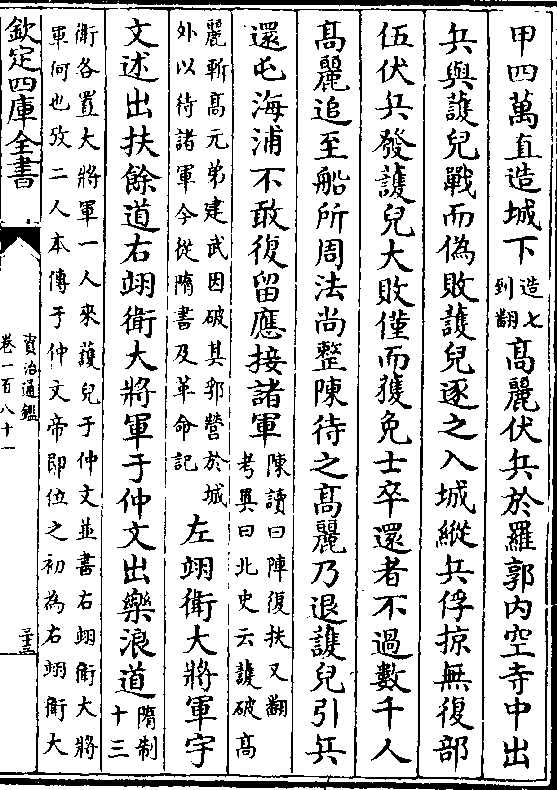 甲四萬直造城下造七到翻高麗伏兵於羅郭內空寺中出
兵與護兒戰而偽敗護兒逐之入城縱兵俘掠無復部
伍伏兵發護兒大敗僅而獲免士卒還者不過數千人
高麗追至船所周法尚整陳待之高麗乃退護兒引兵
還屯海浦不敢復留應接諸軍陳讀曰陣復扶又翻
考異曰北史云護破高
麗斬高元弟建武因破其郛營於城
外以待諸軍今從隋書及革命記左翊衛大將軍宇
文述出扶餘道右翊衛大將軍于仲文出樂浪道隋制十三
衛各置大將軍一人來護兒于仲文並書右翊衛大將
軍何也攷二人本傳于仲文帝即位之初為右翊衛大
欽定四庫全書
資治通鑑
卷一百八十一